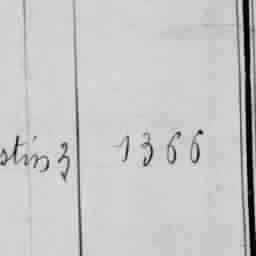 stin 3 1366